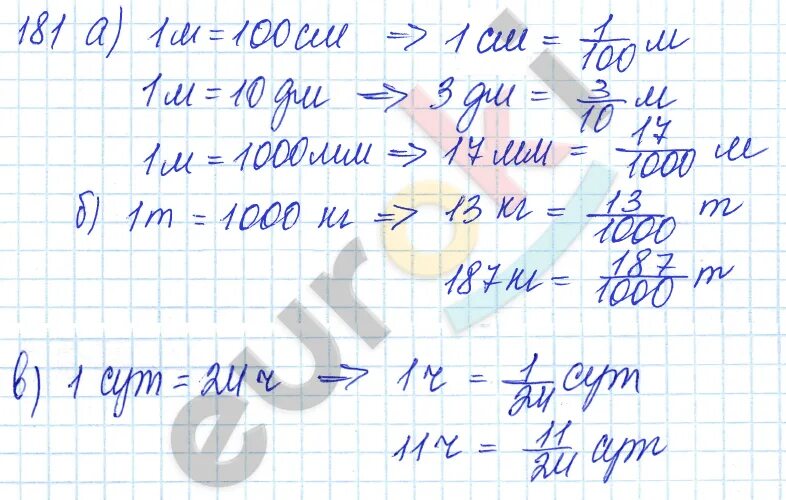 181 а) 1м = 100см => 1 см = 1/100 м
1м = 10 дм => 3 дм = 3/10 м
1м = 1000мм => 17 мм = 17/1000 м
б) 1т = 1000 кг => 13 кг = 13/1000 т
187кг = 187/1000 т
в) 1 сут = 24 ч => 1ч = 1/24 сут
11ч = 11/24 сут
euroki